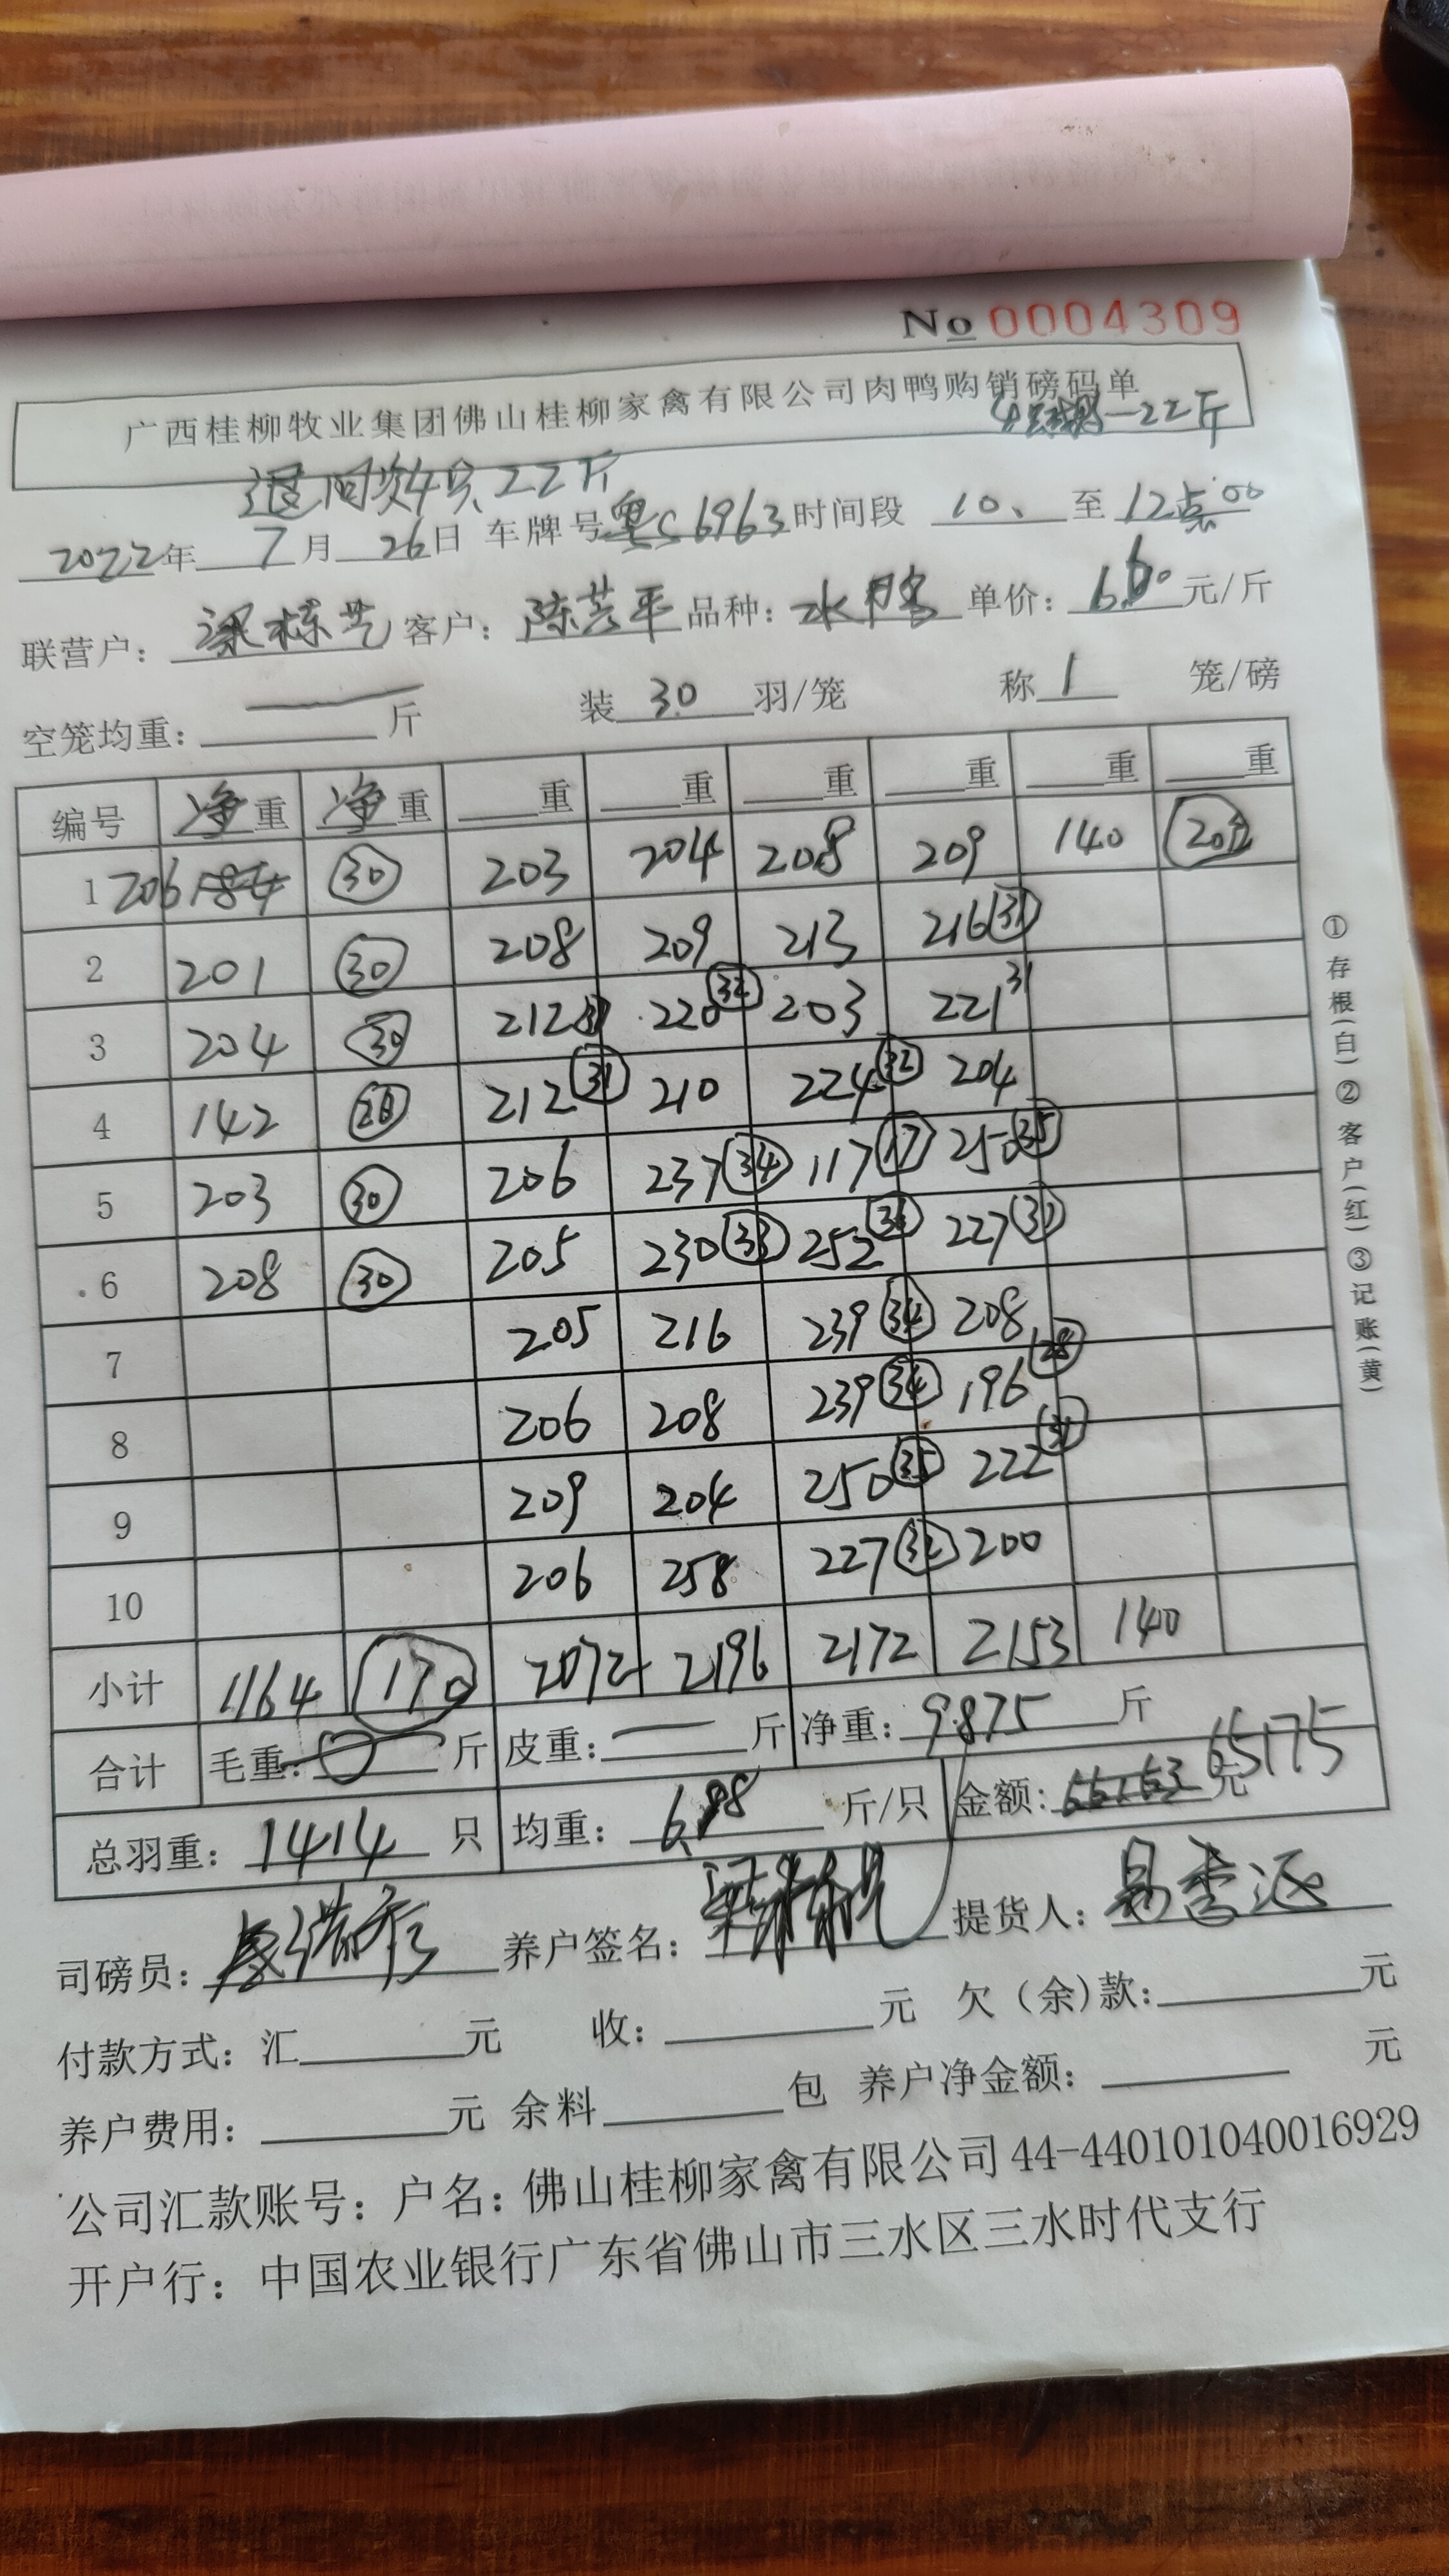 No 0004309
广西桂柳牧业集团佛山桂柳家禽有限公司肉鸭购销磅码单
-22斤
退回次4只22斤
2022年 7月 26日 车牌号粤S6963时间段 10、 至 12点:00
联营户: 梁栋艺 客户: 陈芸平 品种: 水鸭 单价: 6.60 元/斤
空笼均重: — 斤 装 30 羽/笼 称 1 笼/磅
编号 净重 净重 重 重 重 重 重 重
1 206 184 30 203 204 208 209 140 20
2 201 30 208 209 213 216 31
3 204 30 212 31 220 32 203 221 31
4 142 20 212 31 210 224 32 204
5 203 30 206 237 34 117 17 250 35
6 208 30 205 230 33 252 227
7 205 216 239 34 208
8 206 208 239 34 196 28
9 209 204 250 35 222 31
10 206 258 227 32 200
小计 1164 170 2072 2196 2172 2153 140
合计 毛重: 斤 皮重: — 斤 净重: 9875 斤
总羽重: 1414 只 均重: 6.98 斤/只 金额: 66163 元 65175
司磅员: 养户签名: 提货人:
付款方式: 汇 元 收: 元 欠(余)款: 元
养户费用: 元 余料 包 养户净金额: 元
公司汇款账号: 户名: 佛山桂柳家禽有限公司 44-440101040016929
开户行: 中国农业银行广东省佛山市三水区三水时代支行
①存根(白)②客户(红)③记账(黄)